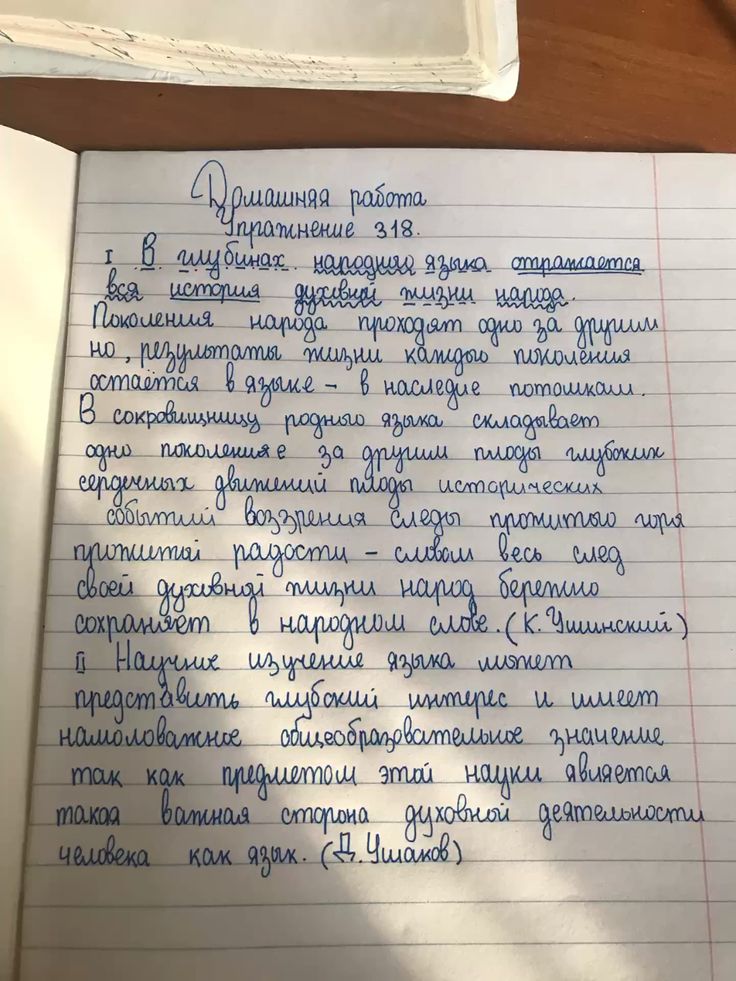 Домашняя работа
Упражнение 318.
I В глубинах народного языка отражается
вся история духовной жизни народа.
Поколения народа проходят одно за другим
но, результаты жизни каждого поколения
остаётся в языке – в наследие потомкам.
В сокровищницу родного языка складывает
одно поколенияе за другим плоды глубоких
сердечных движений плоды исторических
событий воззрения следы прожитого горя
прожитой радости – словом весь след
своей духовной жизни народ бережно
сохраняет в народном слове. (К. Ушинский)
II Научние изучение языка может
представить глубокий интерес и имеет
намоловажное общеобразовательное значение
так как предметом этой науки является
такая важная сторона духовной деятельности
человека как язык. (Д. Ушаков)